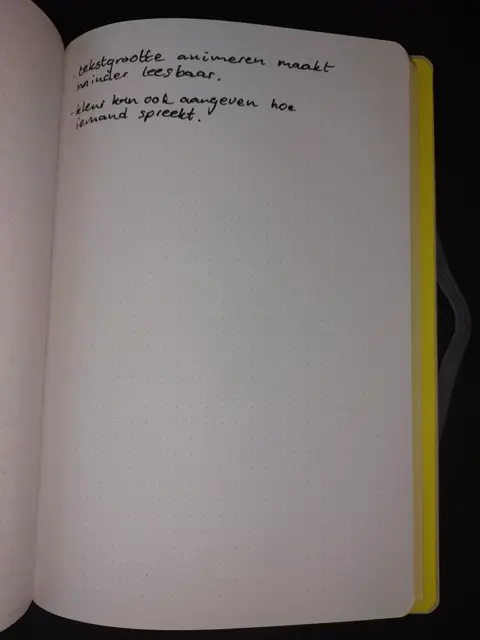 - tekstgrootte animeren maakt
minder leesbaar.
- kleur kan ook aangeven hoe
iemand spreekt.